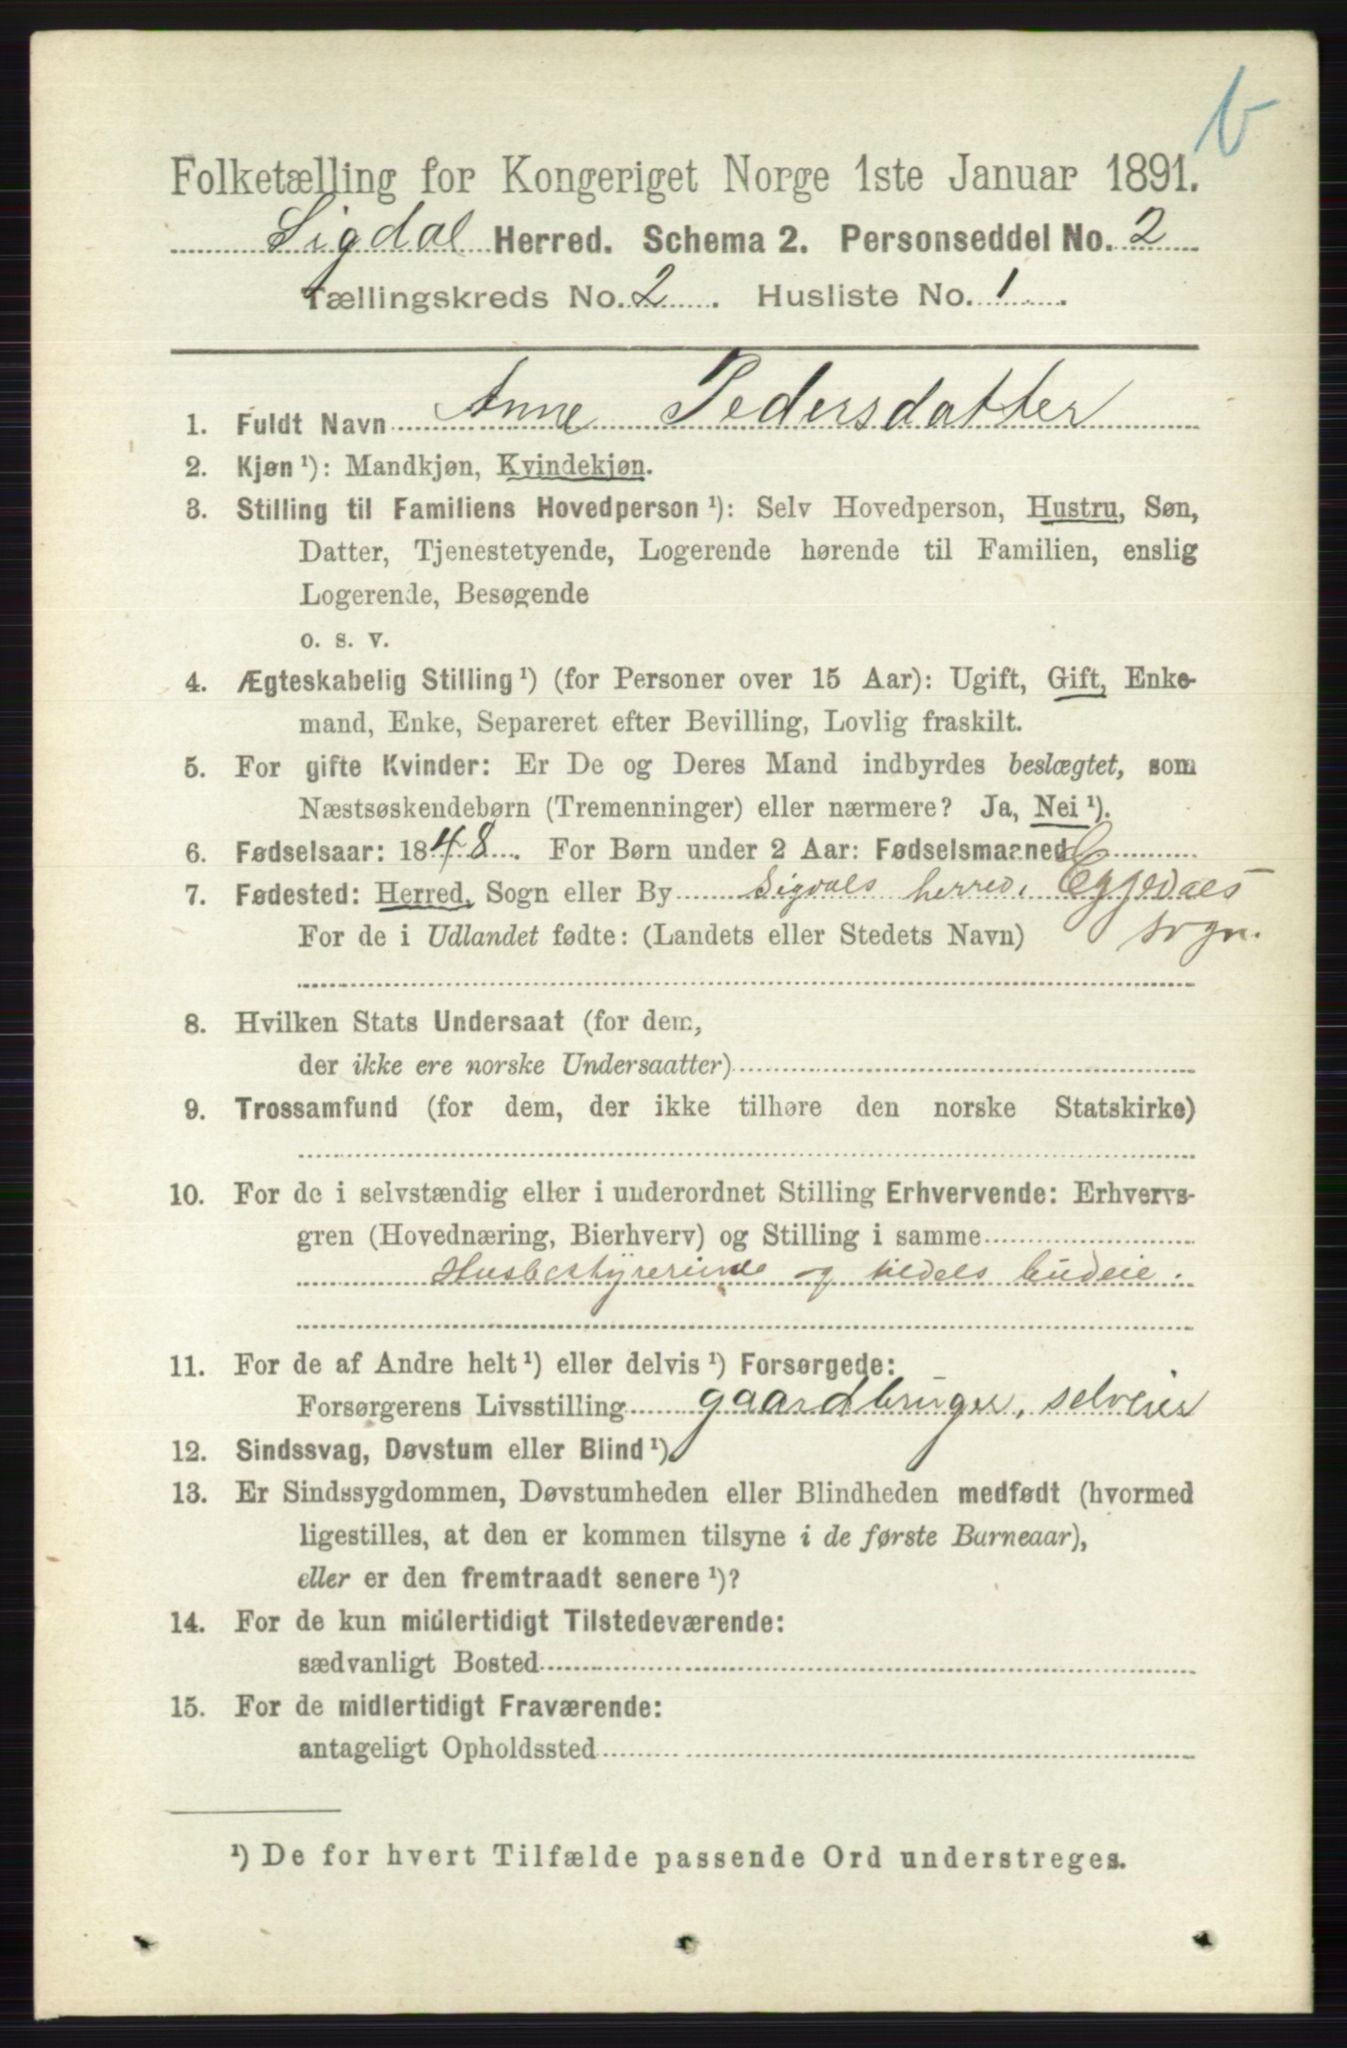 b
Folketælling for Kongeriget Norge 1ste Januar 1891.
Sigdal Herred. Schema 2. Personseddel No. 2
Tællingskreds No. 2. Husliste No. 1.
1. Fuldt Navn Anne Pedersdatter
2. Kjøn ¹): Mandkjøn, Kvindekjøn.
3. Stilling til Familiens Hovedperson ¹): Selv Hovedperson, Hustru, Søn,
Datter, Tjenestetyende, Logerende hørende til Familien, enslig
Logerende, Besøgende
o. s. v.
4. Ægteskabelig Stilling ¹) (for Personer over 15 Aar): Ugift, Gift, Enke-
mand, Enke, Separeret efter Bevilling, Lovlig fraskilt.
5. For gifte Kvinder: Er De og Deres Mand indbyrdes beslægtet, som
Næstsøskendebørn (Tremenninger) eller nærmere? Ja, Nei ¹).
6. Fødselsaar: 1848. For Børn under 2 Aar: Fødselsmaaned
7. Fødested: Herred, Sogn eller By Sigdals herred, Eggedals
For de i Udlandet fødte: (Landets eller Stedets Navn) sogn.
8. Hvilken Stats Undersaat (for dem,
der ikke ere norske Undersaatter)
9. Trossamfund (for dem, der ikke tilhøre den norske Statskirke)
10. For de i selvstændig eller i underordnet Stilling Erhvervende: Erhvervs-
gren (Hovednæring, Bierhverv) og Stilling i samme
Husbestyrerinde og tildels budeie.
11. For de af Andre helt ¹) eller delvis ¹) Forsørgede:
Forsørgerens Livsstilling gaardbruger, selveier
12. Sindssvag, Døvstum eller Blind ¹).
13. Er Sindssygdommen, Døvstumheden eller Blindheden medfødt (hvormed
ligestilles, at den er kommen tilsyne i de første Barneaar),
eller er den fremtraadt senere ¹)?
14. For de kun midlertidigt Tilstedeværende:
sædvanligt Bosted
15. For de midlertidigt Fraværende:
antageligt Opholdssted
¹) De for hvert Tilfælde passende Ord understreges.